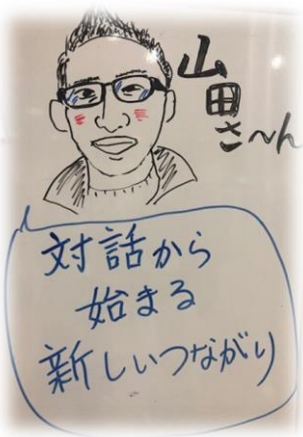 山田さ〜ん
対話から
始まる
新しいつながり